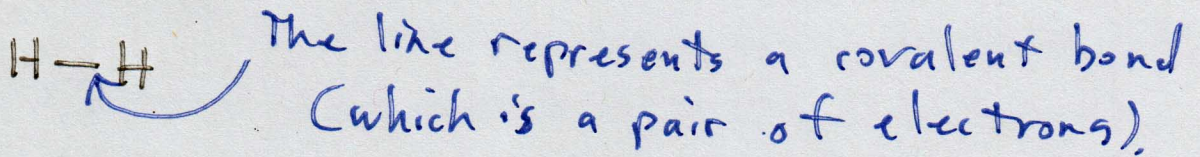 H-H The line represents a covalent bond
(which is a pair of electrons).